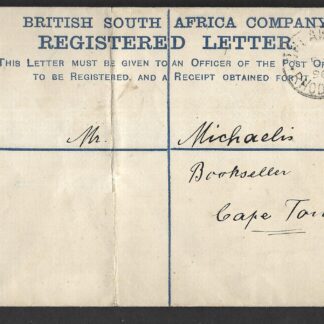 BRITISH SOUTH AFRICA COMPANY
REGISTERED LETTER.
THIS LETTER MUST BE GIVEN TO AN OFFICER OF THE POST OF
TO BE REGISTERED, AND A RECEIPT OBTAINED FOR
Mr. Michaelis
Bookseller
Cape Tow